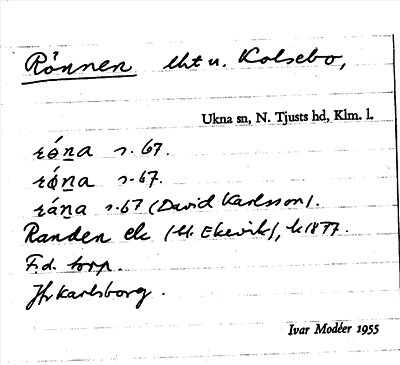 Rönnen lht u. Kolsebo,
Ukna sn, N. Tjusts hd, Klm. l.
róna s. 67.
rǿna s. 67.
rána s. 67 (David Karlsson).
Randen ek (M. Ekevik), k 1877.
F.d. torp.
Jfr Karlsborg.
Ivar Modéer 1955